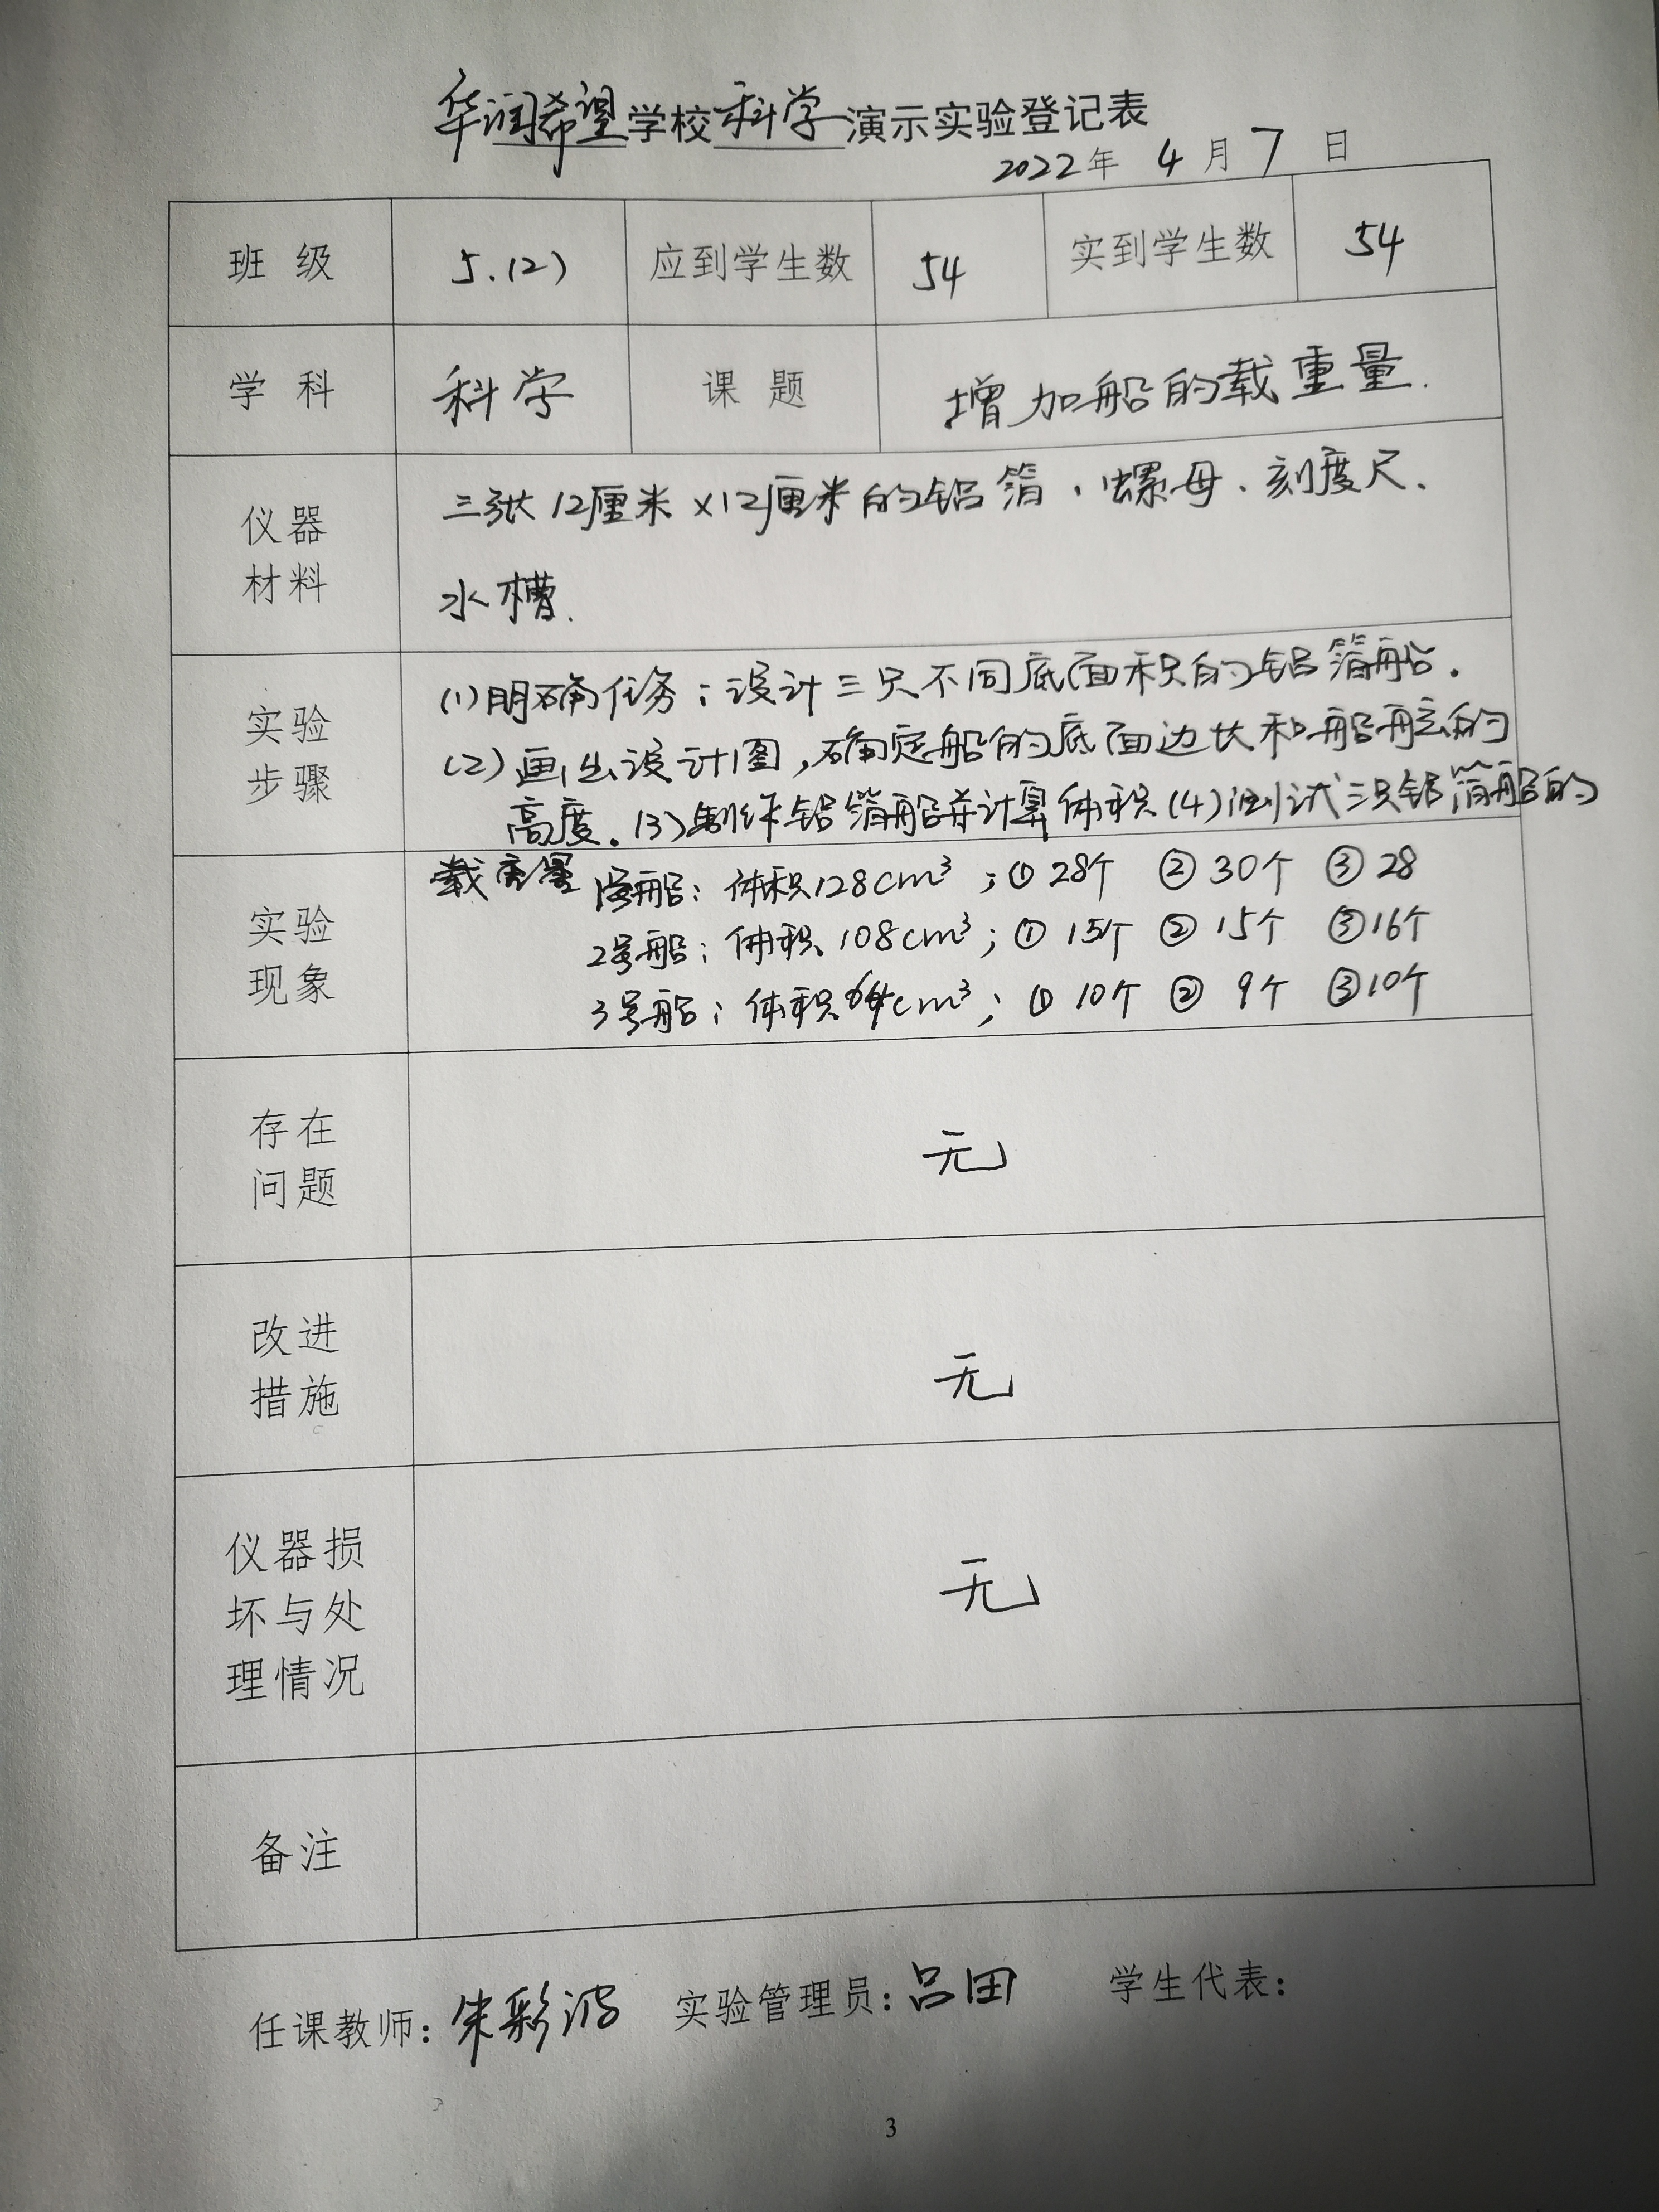 华润希望学校科学演示实验登记表
2022年 4月7日
班 级 5.(2) 应到学生数 54 实到学生数 54
学 科 科学 课 题 增加船的载重量.
仪器材料
三张12厘米×12厘米的铝箔、螺母、刻度尺、
水槽.
实验步骤
(1)明确任务:设计三只不同底面积的铝箔船.
(2)画出设计图,确定船的底面边长和船舷的
高度.(3)制作铝箔船并计算体积(4)测试三只铝箔船的
载重量
实验现象
1号船:体积128cm³;①28个 ②30个 ③28
2号船:体积108cm³;①15个 ②15个 ③16个
3号船:体积64cm³;①10个 ②9个 ③10个
存在问题
无
改进措施
无
仪器损坏与处理情况
无
备注
任课教师:朱彩波 实验管理员:吕田 学生代表:
3